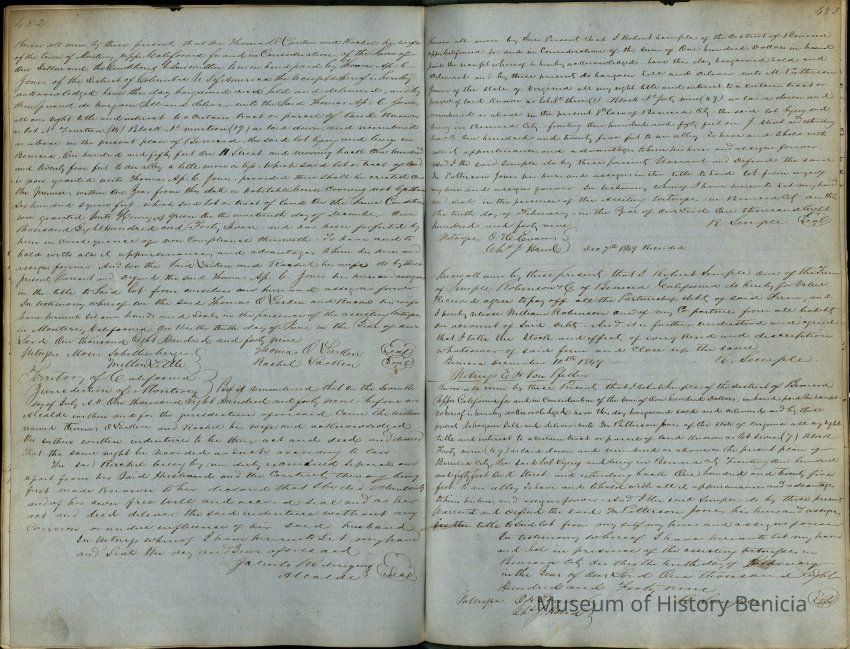 482
Know all men by these present, that We Thomas O Larkin and Rachel his wife
of the town of Monterey Upper California for and in Consideration of the Sum of
One Dollar and the Conditions herein
Jones of the District of Columbia U. S. of America the receipt whereof is hereby
acknowledged have this day bargained and sold and delivered, and by
these present do bargain sell and deliver unto the Said Thomas Ap. C. Jones,
all our right title and interest to a Certain tract or parcel of land Known
as lot No Fourteen (14) Block No nineteen (19) as laid down and numbered
as above in the present plan of Benicia, the said lot lying and being in
Benicia One hundred and fifty feet on H Street and running back One hundred
and twenty five feet to an alley
is
the premises within One Year from the date a habitable house Covering not less than
Six hundred Square feet which said lot or tract of land On the Same Condition
was granted unto Henry A Green On the nineteenth day of December One
thousand Eight Hundred and Forty Seven and has been forfeited by
him in Consequence of non Compliance therewith To have and to
hold with all it appurtenances and advantages to him his heirs and
assigns forever. And We the Said Larkin and Rachel his wife do by these
present, Warrant and defend the Said Thomas Ap. C. Jones his heirs and assigns
in the title to Said lot from ourselves our heirs and assigns forever
In testimony whereof We the Said Thomas O Larkin and Rachel his wife
have hereunto Set our hands and Seals in the presence of the assisting witnesses
in Monterey California On this the tenth day of June in the Year of our
Lord One thousand Eight Hundred and forty nine
Witnesses Moses Schallenberger Thomas O Larkin Seal
Milton Little Rachel Larkin Seal
Territory of California
Jurisdiction of Monterey Be it remembered that On the Seventh
day of July A D One thousand Eight Hundred and forty nine before me
Alcalde within and for the jurisdiction aforesaid Came the within
named Thomas O Larkin and Rachel his wife and acknowledged
the within written indenture to be their act and deed and desired
that the same might be recorded as Such according to law
The Said Rachel being by me duly examined Separate and
apart from her Said Husband and the Contents thereof being
first made known to her declared that She did Voluntarily
and of her own free will and accord Seal and as her
act and deed deliver the said indenture without any
Coercion or undue influence of her said husband
In Witness whereof I have hereunto Set my hand
and Seal the day and Year aforesaid
Jacinto Rodriguez
Alcalde Seal
483
Know all men by these Present that I Robert Semple of the District of Benicia
Upper California for and in Consideration of the Sum of One hundred Dollars in hand
paid the receipt whereof is hereby acknowledged have this day bargained Sold and
delivered and by these present do bargain Sell and deliver unto M Patterson
Jones of the State of Virginia all my right title and interest to a certain tract or
parcel of land Known as lot No three (3) Block No forty nine (49) as laid down and
numbered as above in the present Plan of Benicia City the said lot lying and
being in Benicia City fronting One hundred and fifty feet on J Street and extending
back One hundred and twenty five feet to an alley To have and to hold with
all it appurtenances and advantages to him his heirs and assigns forever
And I the said Semple do by these present Warrant and Defend the said
M Patterson Jones his heirs and assigns in the title to Said lot from myself
my heirs and assigns forever In testimony whereof I have hereunto set my hand
and Seal in the presence of the assisting witnesses in Benicia City on this
the tenth day of February in the Year of our Lord One thousand Eight
hundred and forty nine R. Semple Seal
Witnesses
Chs. J Hand Dec 7th 1849 Recorded
Know all men by these present that I Robert Semple One of the Firm
of Semple Robinson & Co of Benicia California do hereby for Value
Received agree to pay off all the Partnership debts of said Firm, and
I hereby release William Robinson One of my Co partners from all liability
on account of said debts. And it is further understood and agreed
that I take the Stock and effects of every kind and description
whatsoever of said firm and Close up the same.
Benicia December 10th 1849 R. Semple
Witness E H Von Pfister
Know all men by these Present that I Robert Semple of the District of Benicia
Upper California for and in Consideration of the Sum of One hundred Dollars, in hand paid the receipt
whereof is hereby acknowledged have this day bargained sold and delivered and by these
present do bargain Sell and deliver unto M Patterson Jones of the State of Virginia all my right
title and interest to a certain tract or parcel of land Known as lot Seven (7) Block
Forty nine (49) as laid down and numbered as above in the present plan of
Benicia City, the said lot lying and being in Benicia City fronting One hundred
and fifty feet on K Street and extending back One hundred and twenty five
feet to an alley To have and to hold with all it appurtenances and advantages
to him his heirs and assigns forever. And I the said Semple do by these present
Warrant and Defend the said M Patterson Jones his heirs and assigns
in the title to Said lot from my self my heirs and assigns forever
In testimony whereof I have hereunto Set my hand
and Seal in presence of the assisting witnesses in
Benicia City On this the tenth day of February
in the Year of Our Lord One thousand Eight
Hundred and Forty nine
Witnesses
Museum of History Benicia